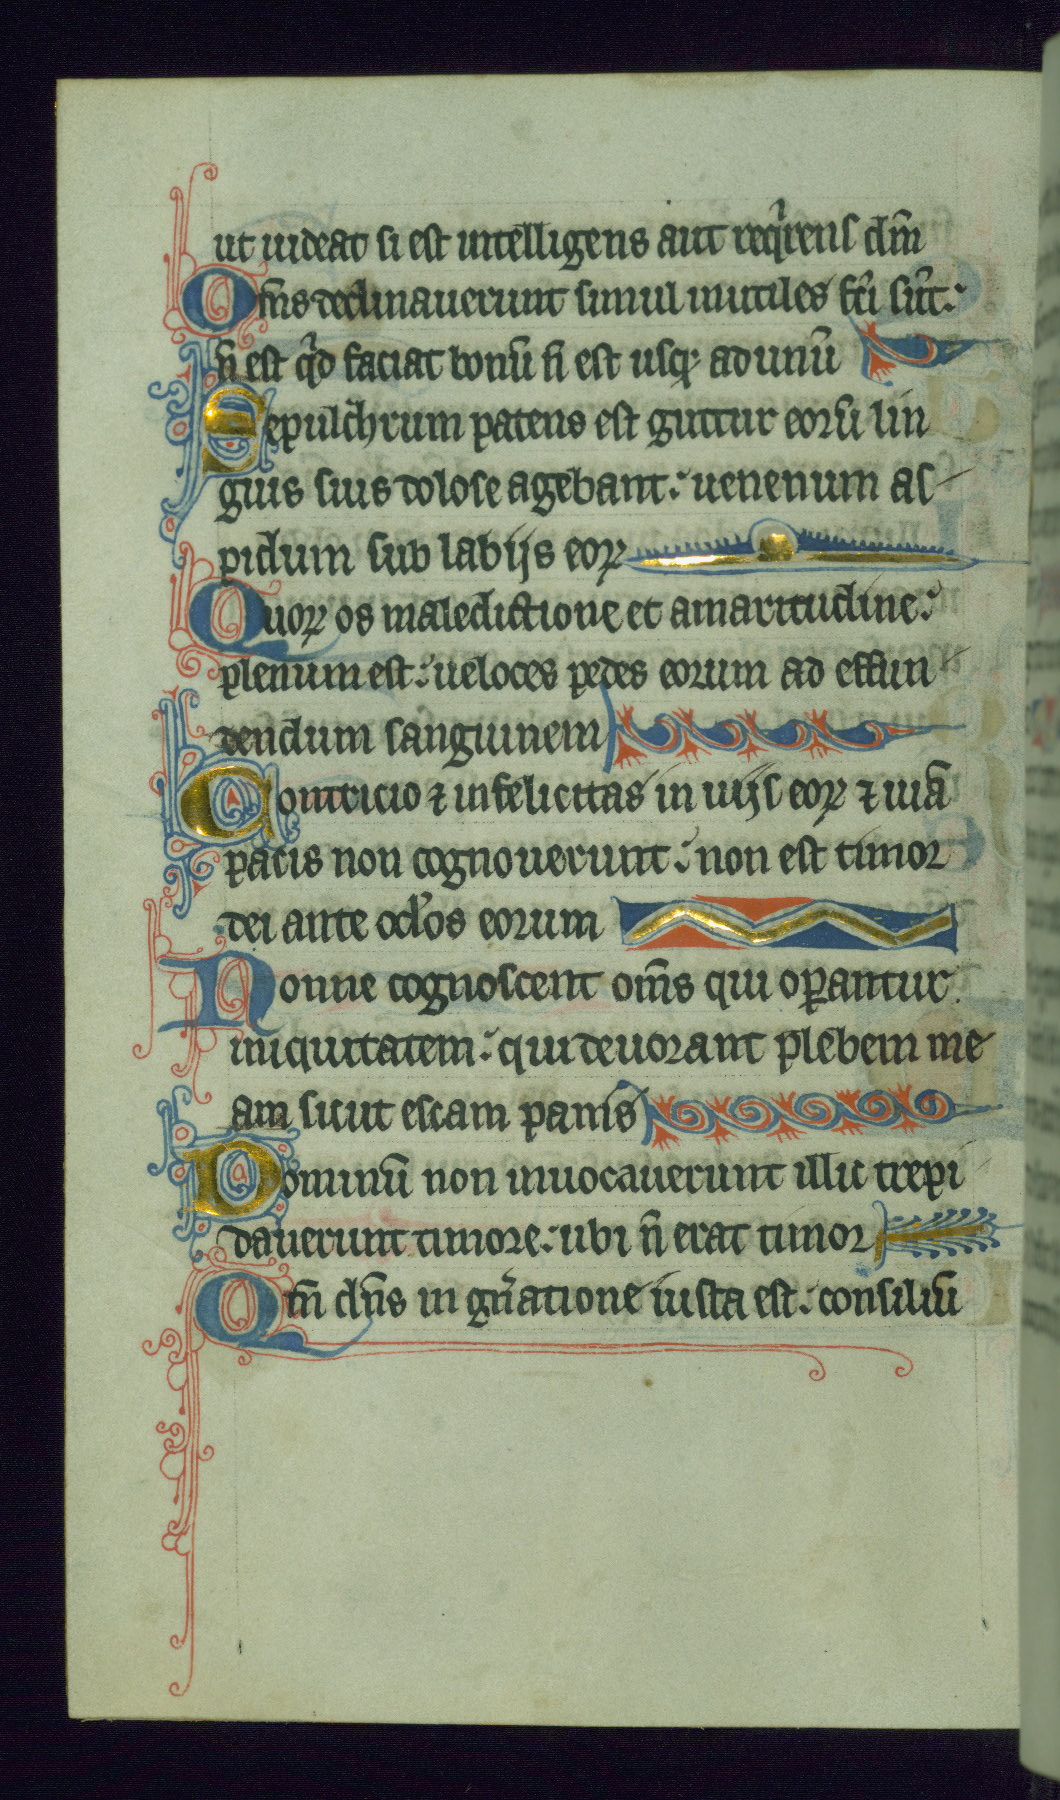 ut uideat si est intelligens aut reqͥrens dm̄
Om̄s declinauerunt simul inutiles fc̄i sūt:
n̄ est qͥd faciat bonū n̄ est usqꝫ ad unū
Sepulchrum patens est guttur eorū lin
guis suis dolose agebant: uenenum as
pidum sub labijs eoꝝ
Quoꝝ os maledictione et amaritudine:
plenum est: ueloces pedes eorum ad effun
dendum sanguinem
Contricio ⁊ infelicitas in uijs eoꝝ ⁊ uiā
pacis non cognouerunt: non est timor
dei ante oc̄los eorum
Nonne cognoscent om̄s qui oꝑantur
iniquitatem: qui deuorant plebem me
am sicut escam panis
Dominū non inuocauerunt illic trepi
dauerunt timore: ubi n̄ erat timor
Qm̄ dn̄s in gn̄atione iusta est: consiliū